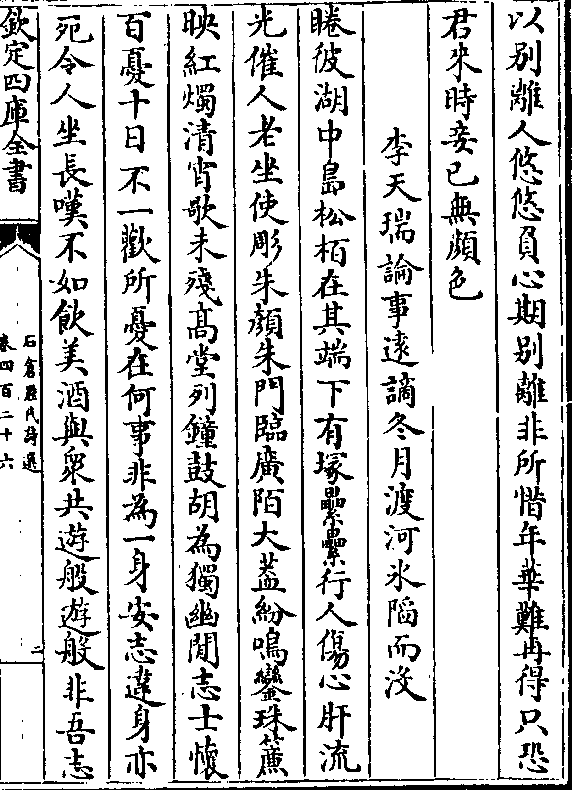 以别離人悠悠負心期别離非所惜年華難再得只恐
君來時妾已無顔色
李天瑞論事逺謫冬月渡河氷陷而没
睠彼湖中島松栢在其端下有塚纍纍行人傷心肝流
光催人老坐使彫朱顔朱門臨廣陌大葢紛鳴鑾珠簾
映紅燭清宵歌未殘髙堂列鐘鼓胡為獨幽閒志士懐
百憂十日不一歡所憂在何事非為一身安志違身亦
死令人坐長嘆不如飲美酒與衆共遊般遊般非吾志
欽定四庫全書
石倉歴代詩選
卷四百二十六
二